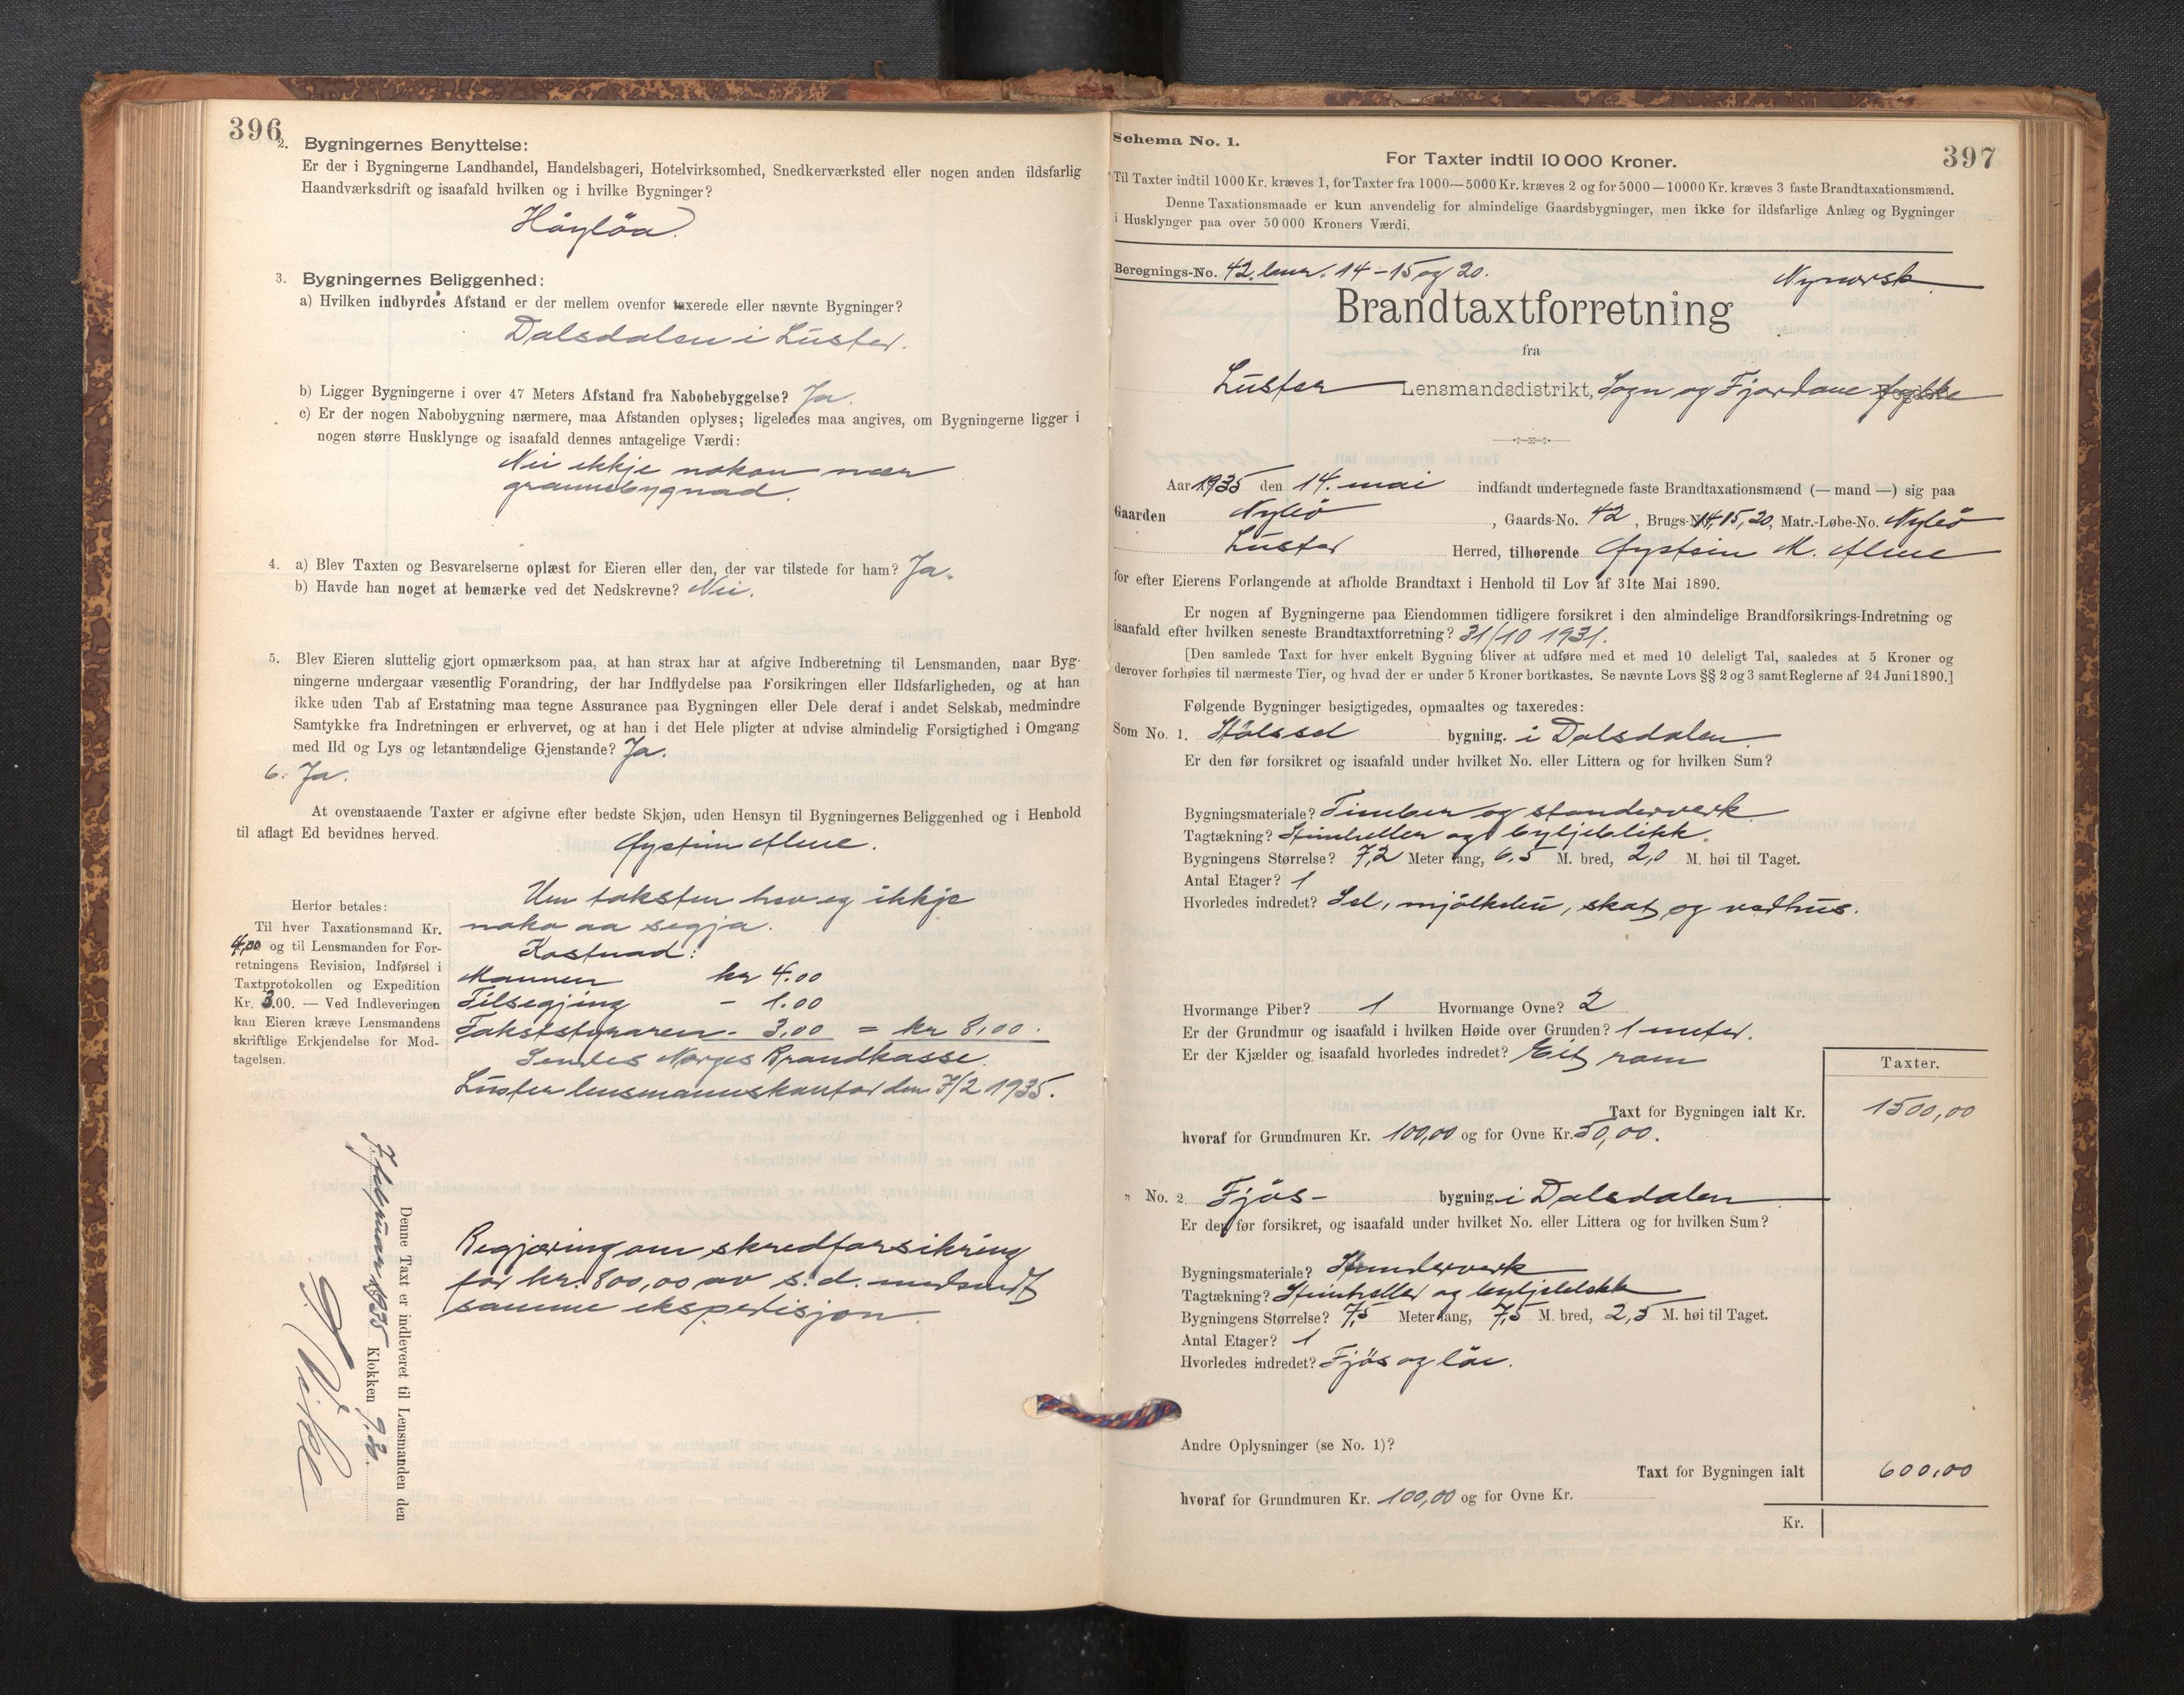 396
2. Bygningernes Benyttelse:
Er der i Bygningerne Landhandel, Handelsbageri, Hotelvirksomhed, Snedkerværksted eller nogen anden ildsfarlig
Haandværksdrift og isaafald hvilken og i hvilke Bygninger?
Höyløa.
3. Bygningernes Beliggenhed:
a) Hvilken indbyrdes Afstand er der mellem ovenfor taxerede eller nævnte Bygninger?
Dalsdalen i Luster.
b) Ligger Bygningerne i over 47 Meters Afstand fra Nabobebyggelse? Ja.
c) Er der nogen Nabobygning nærmere, maa Afstanden oplyses; ligeledes maa angives, om Bygningerne ligger i
nogen større Husklynge og isaafald dennes antagelige Værdi:
Nei ikkje nokon nær
grannebygnad.
4. a) Blev Taxten og Besvarelserne oplæst for Eieren eller den, der var tilstede for ham? Ja.
b) Havde han noget at bemærke ved det Nedskrevne? Nei.
5. Blev Eieren sluttelig gjort opmærksom paa, at han strax har at afgive Indberetning til Lensmanden, naar Byg-
ningerne undergaar væsentlig Forandring, der har Indflydelse paa Forsikringen eller Ildsfarligheden, og at han
ikke uden Tab af Erstatning maa tegne Assurance paa Bygningen eller Dele deraf i andet Selskab, medmindre
Samtykke fra Indretningen er erhvervet, og at han i det Hele pligter at udvise almindelig Forsigtighed i Omgang
med Ild og Lys og letantændelige Gjenstande? Ja.
6. Ja.
At ovenstaaende Taxter er afgivne efter bedste Skjøn, uden Hensyn til Bygningernes Beliggenhed og i Henhold
til aflagt Ed bevidnes herved.
Øystein
Um taksten hev eg ikkje
noko aa segja.
Herfor betales:
Til hver Taxationsmand Kr.
4,00 og til Lensmanden for For-
retningens Revision, Indførsel i
Taxtprotokollen og Expedition
Kr. 3.00. — Ved Indleveringen
kan Eieren kræve Lensmandens
skriftlige Erkjendelse for Mod-
tagelsen.
Kostnad:
Mannen kr 4.00
Tilsegjing - 1.00
Takststyraren - 3,00 = kr 8,00.
Sendes Norges Brandkasse.
Luster lensmannskontor den 7/2 1935.
Denne Taxt er indleveret til Lensmanden den
7. februar 1935 Klokken
Krgjæring om skredforsikring
for kr. 800,00 av s. d. medsendt
samme ekspedisjon.
Schema No. 1.
397
For Taxter indtil 10 000 Kroner.
Til Taxter indtil 1000 Kr. kræves 1, for Taxter fra 1000—5000 Kr. kræves 2 og for 5000—10000 Kr. kræves 3 faste Brandtaxationsmænd.
Denne Taxationsmaade er kun anvendelig for almindelige Gaardsbygninger, men ikke for ildsfarlige Anlæg og Bygninger
i Husklynger paa over 50 000 Kroners Værdi.
Beregnings-No. 42. bnr. 14-15 og 20.
Nynorsk.
Brandtaxtforretning
fra
Luster Lensmandsdistrikt, Sogn og Fjordane
Aar 1935 den 14. mai indfandt undertegnede faste Brandtaxationsmænd (— mand —) sig paa
Gaarden , Gaards-No. 42, Brugs-No. 14, 15, 20, Matr.-Løbe-No.
Luster Herred, tilhørende Øystein M.
for efter Eierens Forlangende at afholde Brandtaxt i Henhold til Lov af 31te Mai 1890.
Er nogen af Bygningerne paa Eiendommen tidligere forsikret i den almindelige Brandforsikrings-Indretning og
isaafald efter hvilken seneste Brandtaxtforretning? 31/10 1931.
[Den samlede Taxt for hver enkelt Bygning bliver at udføre med et med 10 deleligt Tal, saaledes at 5 Kroner og
derover forhøies til nærmeste Tier, og hvad der er under 5 Kroner bortkastes. Se nævnte Lovs §§ 2 og 3 samt Reglerne af 24 Juni 1890.]
Følgende Bygninger besigtigedes, opmaaltes og taxeredes:
Som No. 1. Stölssel bygning. i Dalsdalen.
Er den før forsikret og isaafald under hvilket No. eller Littera og for hvilken Sum?
Bygningsmateriale? Timber og standerverk
Tagtækning? Steinheller og bylgjeblikk.
Bygningens Størrelse? 7,2 Meter lang, 6,5 M. bred, 2,0 M. høi til Taget.
Antal Etager? 1
Hvorledes indredet? Sel, mjölkebu, skot og vedhus.
Hvormange Piber? 1 Hvormange Ovne? 2
Er der Grundmur og isaafald i hvilken Høide over Grunden? 1 meter.
Er der Kjælder og isaafald hvorledes indredet? Eit rom
Taxter.
Taxt for Bygningen ialt Kr. 1500,00
hvoraf for Grundmuren Kr. 100,00 og for Ovne Kr. 50,00.
" No. 2. Fjös- bygning i Dalsdalen
Er den før forsikret, og isaafald under hvilket No. eller Littera og for hvilken Sum?
Bygningsmateriale? Standerverk
Tagtækning? Steinheller og bylgjeblekk
Bygningens Størrelse? 7,5 Meter lang, 7,5 M. bred, 2,5 M. høi til Taget.
Antal Etager? 1
Hvorledes indredet? Fjös og löe.
Andre Oplysninger (se No. 1)?
Taxt for Bygningen ialt 600,00
hvoraf for Grundmuren Kr. 100,00 og for Ovne Kr.
Kr.